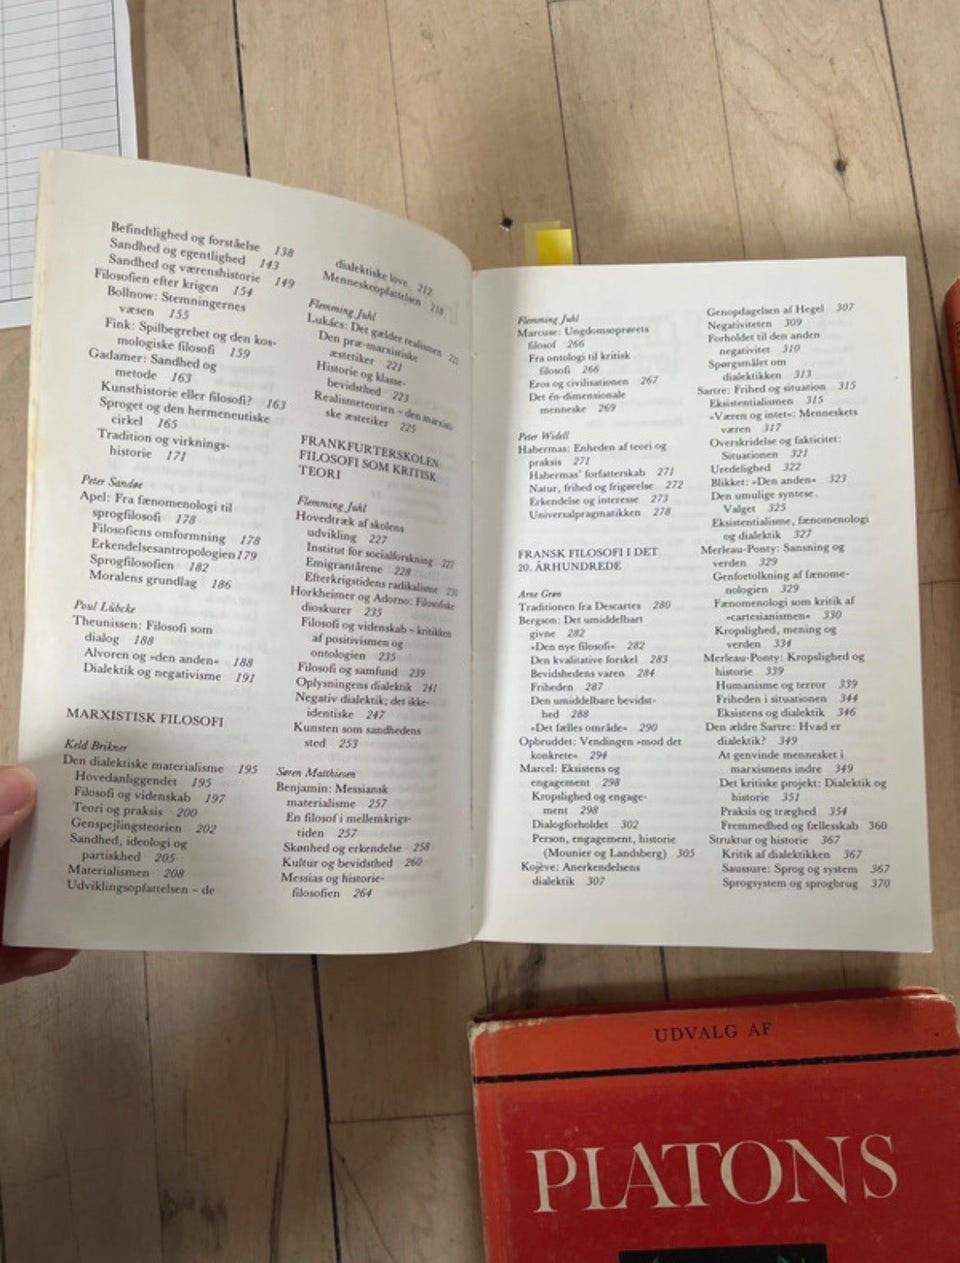 Befindtlighed og forståelse 138
Sandhed og egentlighed 143
Sandhed og værenshistorie 149
Filosofien efter krigen 154
Bollnow: Stemningernes
væsen 155
Fink: Spilbegrebet og den kos-
mologiske filosofi 159
Gadamer: Sandhed og
metode 163
Kunsthistorie eller filosofi? 163
Sproget og den hermeneutiske
cirkel 165
Tradition og virknings-
historie 171
Peter Sandøe
Apel: Fra fænomenologi til
sprogfilosofi 178
Filosofiens omformning 178
Erkendelsesantropologien 179
Sprogfilosofien 182
Moralens grundlag 186
Poul Lübcke
Theunissen: Filosofi som
dialog 188
Alvoren og »den anden« 188
Dialektik og negativisme 191
MARXISTISK FILOSOFI
Keld Brikner
Den dialektiske materialisme 195
Hovedanliggendet 195
Filosofi og videnskab 197
Teori og praksis 200
Genspejlingsteorien 202
Sandhed, ideologi og
partiskhed 205
Materialismen 208
Udviklingsopfattelsen – de
dialektiske love 212
Menneskeopfattelsen 218
Flemming Juhl
Lukács: Det gælder realismen 221
Den præ-marxistiske
æstetiker 221
Historie og klasse-
bevidsthed 223
Realismeteorien – den marxisti-
ske æstetiker 225
FRANKFURTERSKOLEN:
FILOSOFI SOM KRITISK
TEORI
Flemming Juhl
Hovedtræk af skolens
udvikling 227
Institut for socialforskning 227
Emigrantårene 228
Efterkrigstidens radikalisme 231
Horkheimer og Adorno: Filosofiske
dioskurer 235
Filosofi og videnskab – kritikken
af positivismen og
ontologien 235
Filosofi og samfund 239
Oplysningens dialektik 241
Negativ dialektik; det ikke-
identiske 247
Kunsten som sandhedens
sted 253
Søren Matthiesen
Benjamin: Messiansk
materialisme 257
En filosof i mellemkrigs-
tiden 257
Skønhed og erkendelse 258
Kultur og bevidsthed 260
Messias og historie-
filosofien 264
Flemming Juhl
Marcuse: Ungdomsoprørets
filosof 266
Fra ontologi til kritisk
filosofi 266
Eros og civilisationen 267
Det én-dimensionale
menneske 269
Peter Widell
Habermas: Enheden af teori og
praksis 271
Habermas' forfatterskab 271
Natur, frihed og frigørelse 272
Erkendelse og interesse 273
Universalpragmatikken 278
FRANSK FILOSOFI I DET
20. ÅRHUNDREDE
Arne Grøn
Traditionen fra Descartes 280
Bergson: Det umiddelbart
givne 282
»Den nye filosofi« 282
Den kvalitative forskel 283
Bevidshedens varen 284
Friheden 287
Den umiddelbare bevidst-
hed 288
»Det fælles område« 290
Opbruddet: Vendingen »mod det
konkrete« 294
Marcel: Eksistens og
engagement 298
Kropslighed og engage-
ment 298
Dialogforholdet 302
Person, engagement, historie
(Mounier og Landsberg) 305
Kojève: Anerkendelsens
dialektik 307
Genopdagelsen af Hegel 307
Negativiteten 309
Forholdet til den anden
negativitet 310
Spørgsmålet om
dialektikken 313
Sartre: Frihed og situation 315
Eksistentialismen 315
»Væren og intet«: Menneskets
væren 317
Overskridelse og fakticitet:
Situationen 321
Uredelighed 322
Blikket: »Den anden« 323
Den umulige syntese.
Valget 325
Eksistentialisme, fænomenologi
og dialektik 327
Merleau-Ponty: Sansning og
verden 329
Genfortolkning af fænome-
nologien 329
Fænomenologi som kritik af
»cartesianismen« 330
Kropslighed, mening og
verden 334
Merleau-Ponty: Kropslighed og
historie 339
Humanisme og terror 339
Friheden i situationen 344
Eksistens og dialektik 346
Den ældre Sartre: Hvad er
dialektik? 349
At genvinde mennesket i
marxismens indre 349
Det kritiske projekt: Dialektik og
historie 351
Praksis og træghed 354
Fremmedhed og fællesskab 360
Struktur og historie 367
Kritik af dialektikken 367
Saussure: Sprog og system 367
Sprogsystem og sprogbrug 370
UDVALG AF
PLATONS